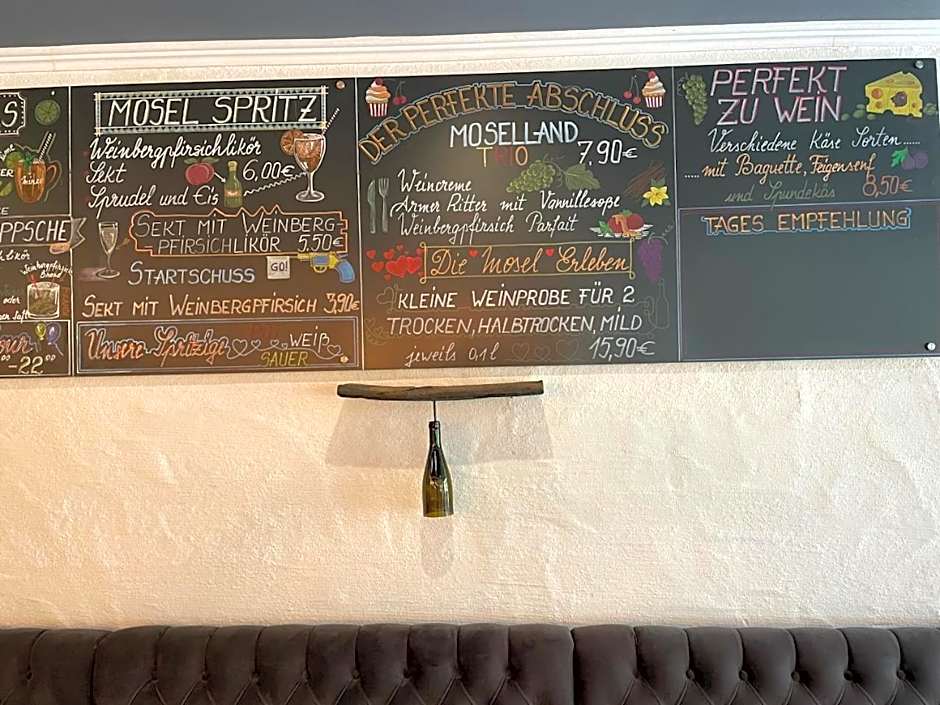 LS
PPSCHE
likör
Weinbergpfirsich
oder
-22⁰⁰
MOSEL SPRITZ
Weinbergpfirsichlikör
Sekt 6,00€
Sprudel und Eis
SEKT MIT WEINBERG-
PFIRSICHLIKÖR 5.50€
STARTSCHUSS GO!
SEKT MIT WEINBERGPFIRSICH 3,90€
Unsere Spritzige WEIß
SAUER
DER PERFEKTE ABSCHLUSS
MOSELLAND
TRIO 7,90€
Weincreme
Armer Ritter mit Vanillesoße
Weinbergpfirsich Parfait
Die Mosel Erleben
KLEINE WEINPROBE FÜR 2
TROCKEN, HALBTROCKEN, MILD
jeweils 0,1 l 15,90€
PERFEKT
ZU WEIN
Verschiedene Käse Sorten......
..... mit Baguette, Feigensenf
und Spundekäs 8,50€
TAGES EMPFEHLUNG